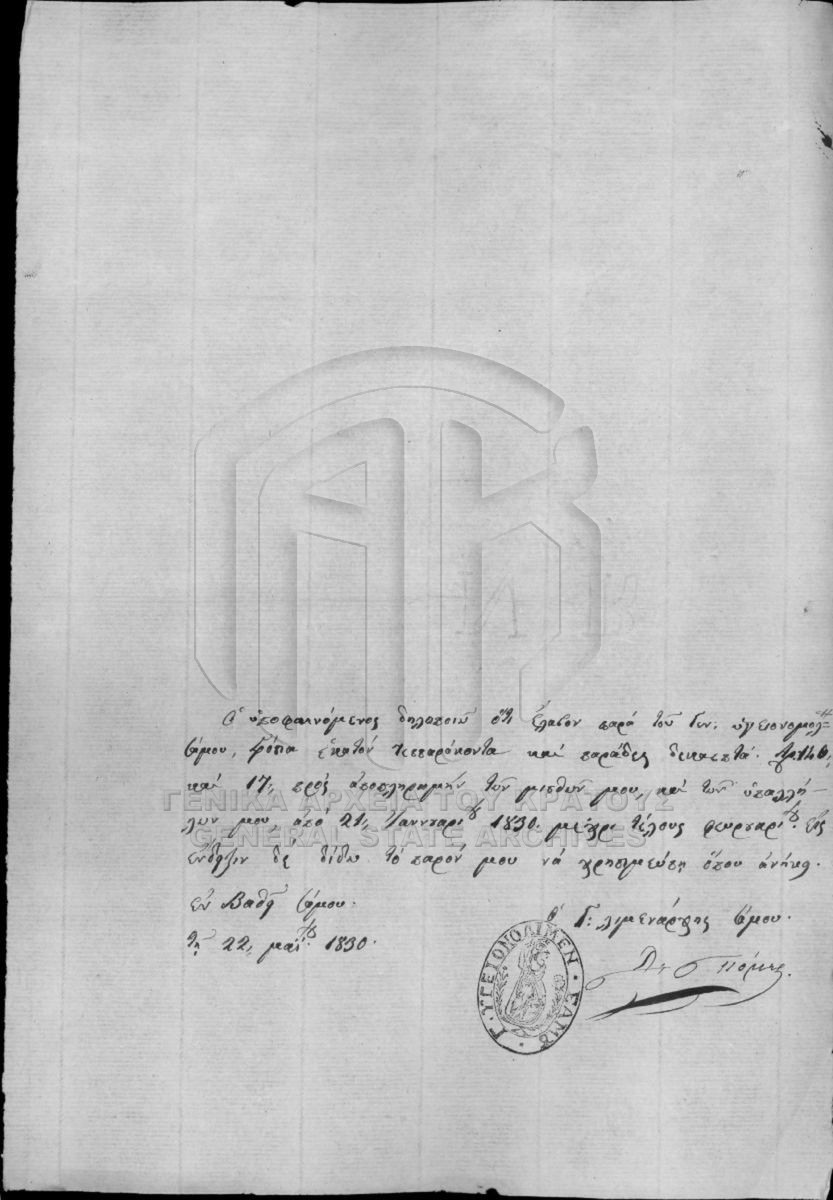 Ὁ ὑποφαινόμενος δηλοποιῶ ὅτι ἔλαβον παρὰ τοῦ Γεν: ὑγειονομολ:
Σάμου, γρόσια ἑκατὸν τεσσαράκοντα καὶ παράδες δεκαεπτά. 140,
καὶ 17, πρὸς ἀποπληρωμὴν τῶν μισθῶν μου, καὶ τῶν ὑπαλλή-
λων μου, ἀπὸ 21, Ἰαννουαρίου 1830. μέχρι τέλους φευρουαρίου. εἰς
ἔνδειξιν δὲ δίδω τὸ παρόν μου νὰ χρησιμεύσῃ ὅπου ἀνήκει.
ἐν Βαθεῖ Σάμου.
τῇ 22, μαΐου 1830.
ὁ Γ: λιμενάρχης Σάμου.
Γ. ΥΓΕΙΟΝΟΛΙΜΕΝ. ΣΑΜΟΥ
ΓΕΝΙΚΑ ΑΡΧΕΙΑ ΤΟΥ ΚΡΑΤΟΥΣ
GENERAL STATE ARCHIVES